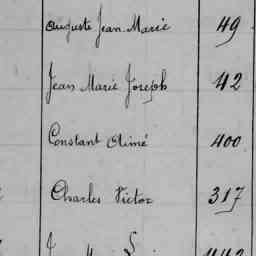 Auguste Jean Marie 49
Jean Marie Joseph 42
Constant Aimé 400
Charles Victor 317